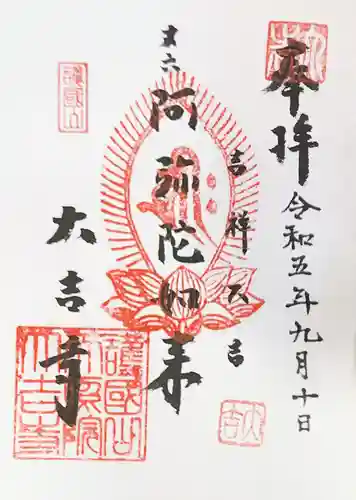 奉拝
令和五年九月十日
吉祥大吉
丈六
阿弥陀如来
大吉寺
護國山
大吉